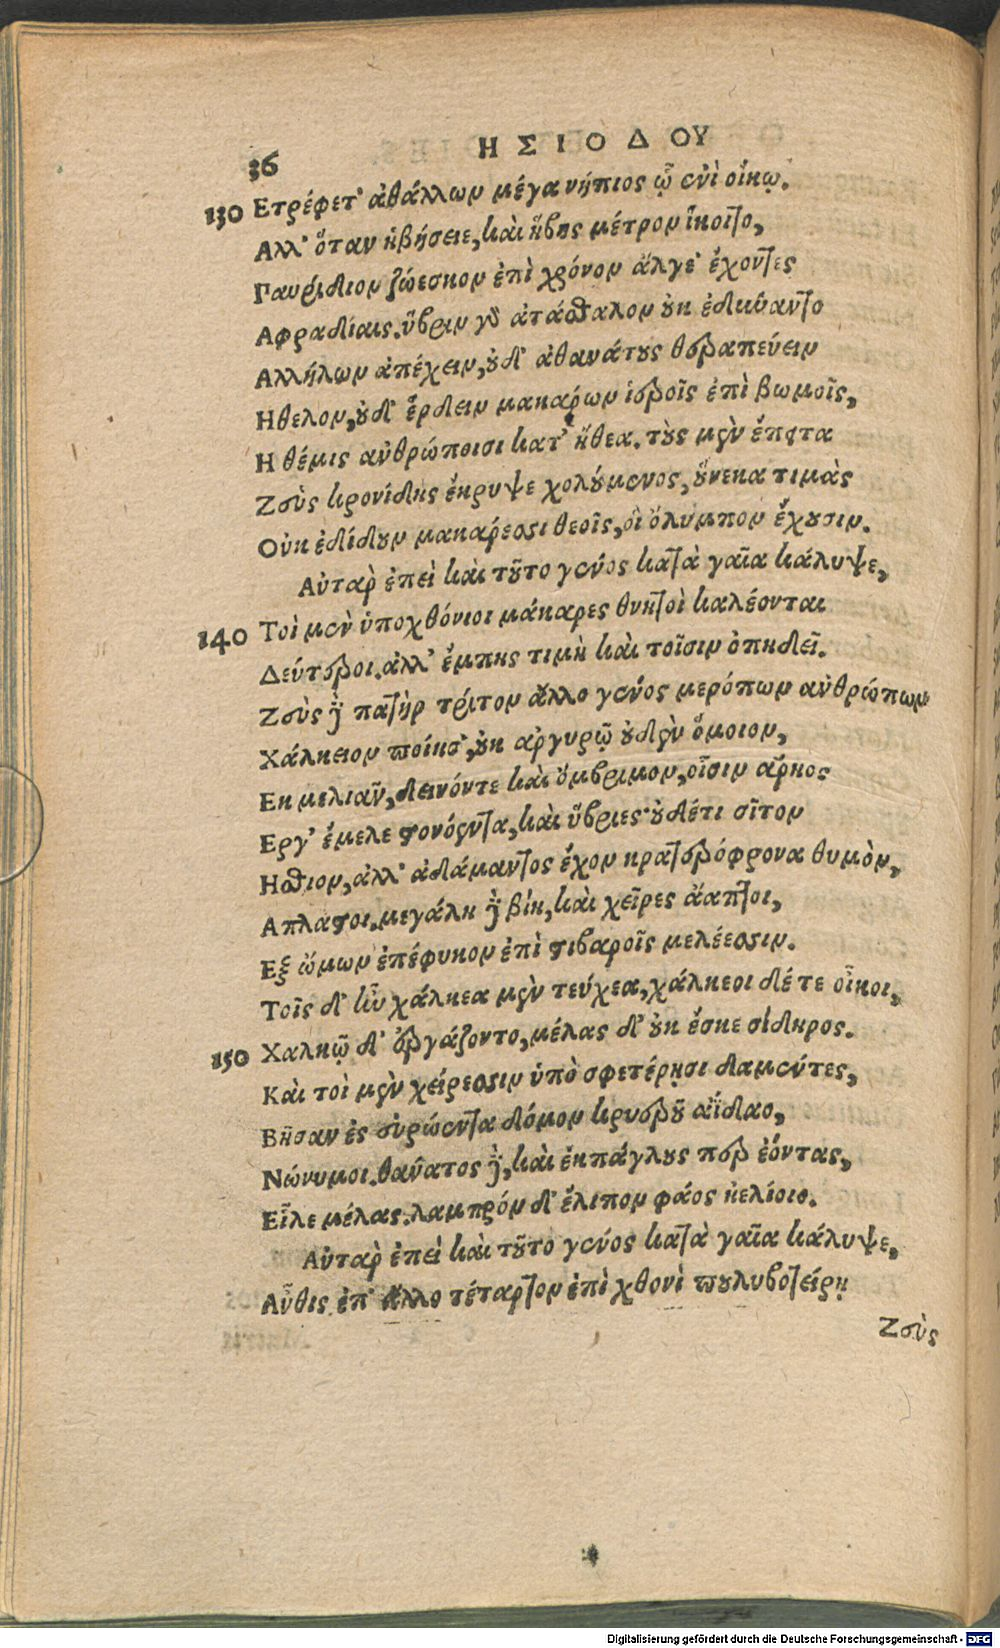 36
ΗΣΙΟΔΟΥ
130 Ετρέφετ᾽ ἀθάλλων μέγα νήπιος ᾧ ἐνὶ οἴκῳ.
Αλλ᾽ ὅταν ἡβήσειε, καὶ ἥβης μέτρον ἵκοιτο,
Παυρίδιον ζώεσκον ἐπὶ χρόνον ἄλγε᾽ ἔχοντες
Αφραδίαις. ὕβριν γὸ ἀτάσθαλον οὐκ ἐδύναντο
Αλλήλων ἀπέχειν, οὐδ᾽ ἀθανάτους θεραπεύειν
Ηθελον, οὐδ᾽ ἔρδειν μακάρων ἱεροῖς ἐπὶ βωμοῖς,
Η θέμις ἀνθρώποισι κατ᾽ ἤθεα. τοὺς μὲν ἔπειτα
Ζεὺς κρονίδης ἔκρυψε χολούμενος, οὕνεκα τιμὰς
Οὐκ ἐδίδουν μακάρεσσι θεοῖς, οἳ ὄλυμπον ἔχουσιν.
Αὐτὰρ ἐπεὶ καὶ τοῦτο γένος κατὰ γαῖα κάλυψε,
140 Τοὶ μὲν ὑποχθόνιοι μάκαρες θνητοὶ καλέονται
Δεύτεροι. ἀλλ᾽ ἔμπης τιμὴ καὶ τοῖσιν ὀπηδεῖ.
Ζεὺς δὲ πατὴρ τρίτον ἄλλο γένος μερόπων ἀνθρώπων
Χάλκειον ποίησ᾽, οὐκ ἀργυρῷ οὐδὲν ὅμοιον,
Εκ μελιᾶν, δεινόντε καὶ ὄμβριμον, οἷσιν ἄρηος
Εργ᾽ ἔμελε στονόεντα, καὶ ὕβριες· οὐδέτι σῖτον
Ησθιον, ἀλλ᾽ ἀδάμαντος ἔχον κρατερόφρονα θυμὸν,
Απλαστοι. μεγάλη δὲ βίη, καὶ χεῖρες ἄαπτοι,
Εξ ὤμων ἐπέφυκον ἐπὶ στιβαροῖς μελέεσσιν.
Τοῖς δ᾽ ἦν χάλκεα μὲν τεύχεα, χάλκεοι δέ τε οἶκοι,
150 Χαλκῷ δ᾽ ἐργάζοντο, μέλας δ᾽ οὐκ ἔσκε σίδηρος.
Καὶ τοὶ μὲν χείρεσσιν ὑπὸ σφετέρῃσι δαμέντες,
Βῆσαν ἐς εὐρώεντα δόμον κρυεροῦ ἀΐδαο,
Νώνυμοι. θάνατος δὲ, καὶ ἐκπάγλους περ ἐόντας,
Εἷλε μέλας. λαμπρὸν δ᾽ ἔλιπον φάος ἠελίοιο.
Αὐτὰρ ἐπεὶ καὶ τοῦτο γένος κατὰ γαῖα κάλυψε,
Αὖθις ἐπ᾽ ἄλλο τέταρτον ἐπὶ χθονὶ πουλυβοτείρῃ
Ζεὺς
Digitalisierung gefördert durch die Deutsche Forschungsgemeinschaft - DFG